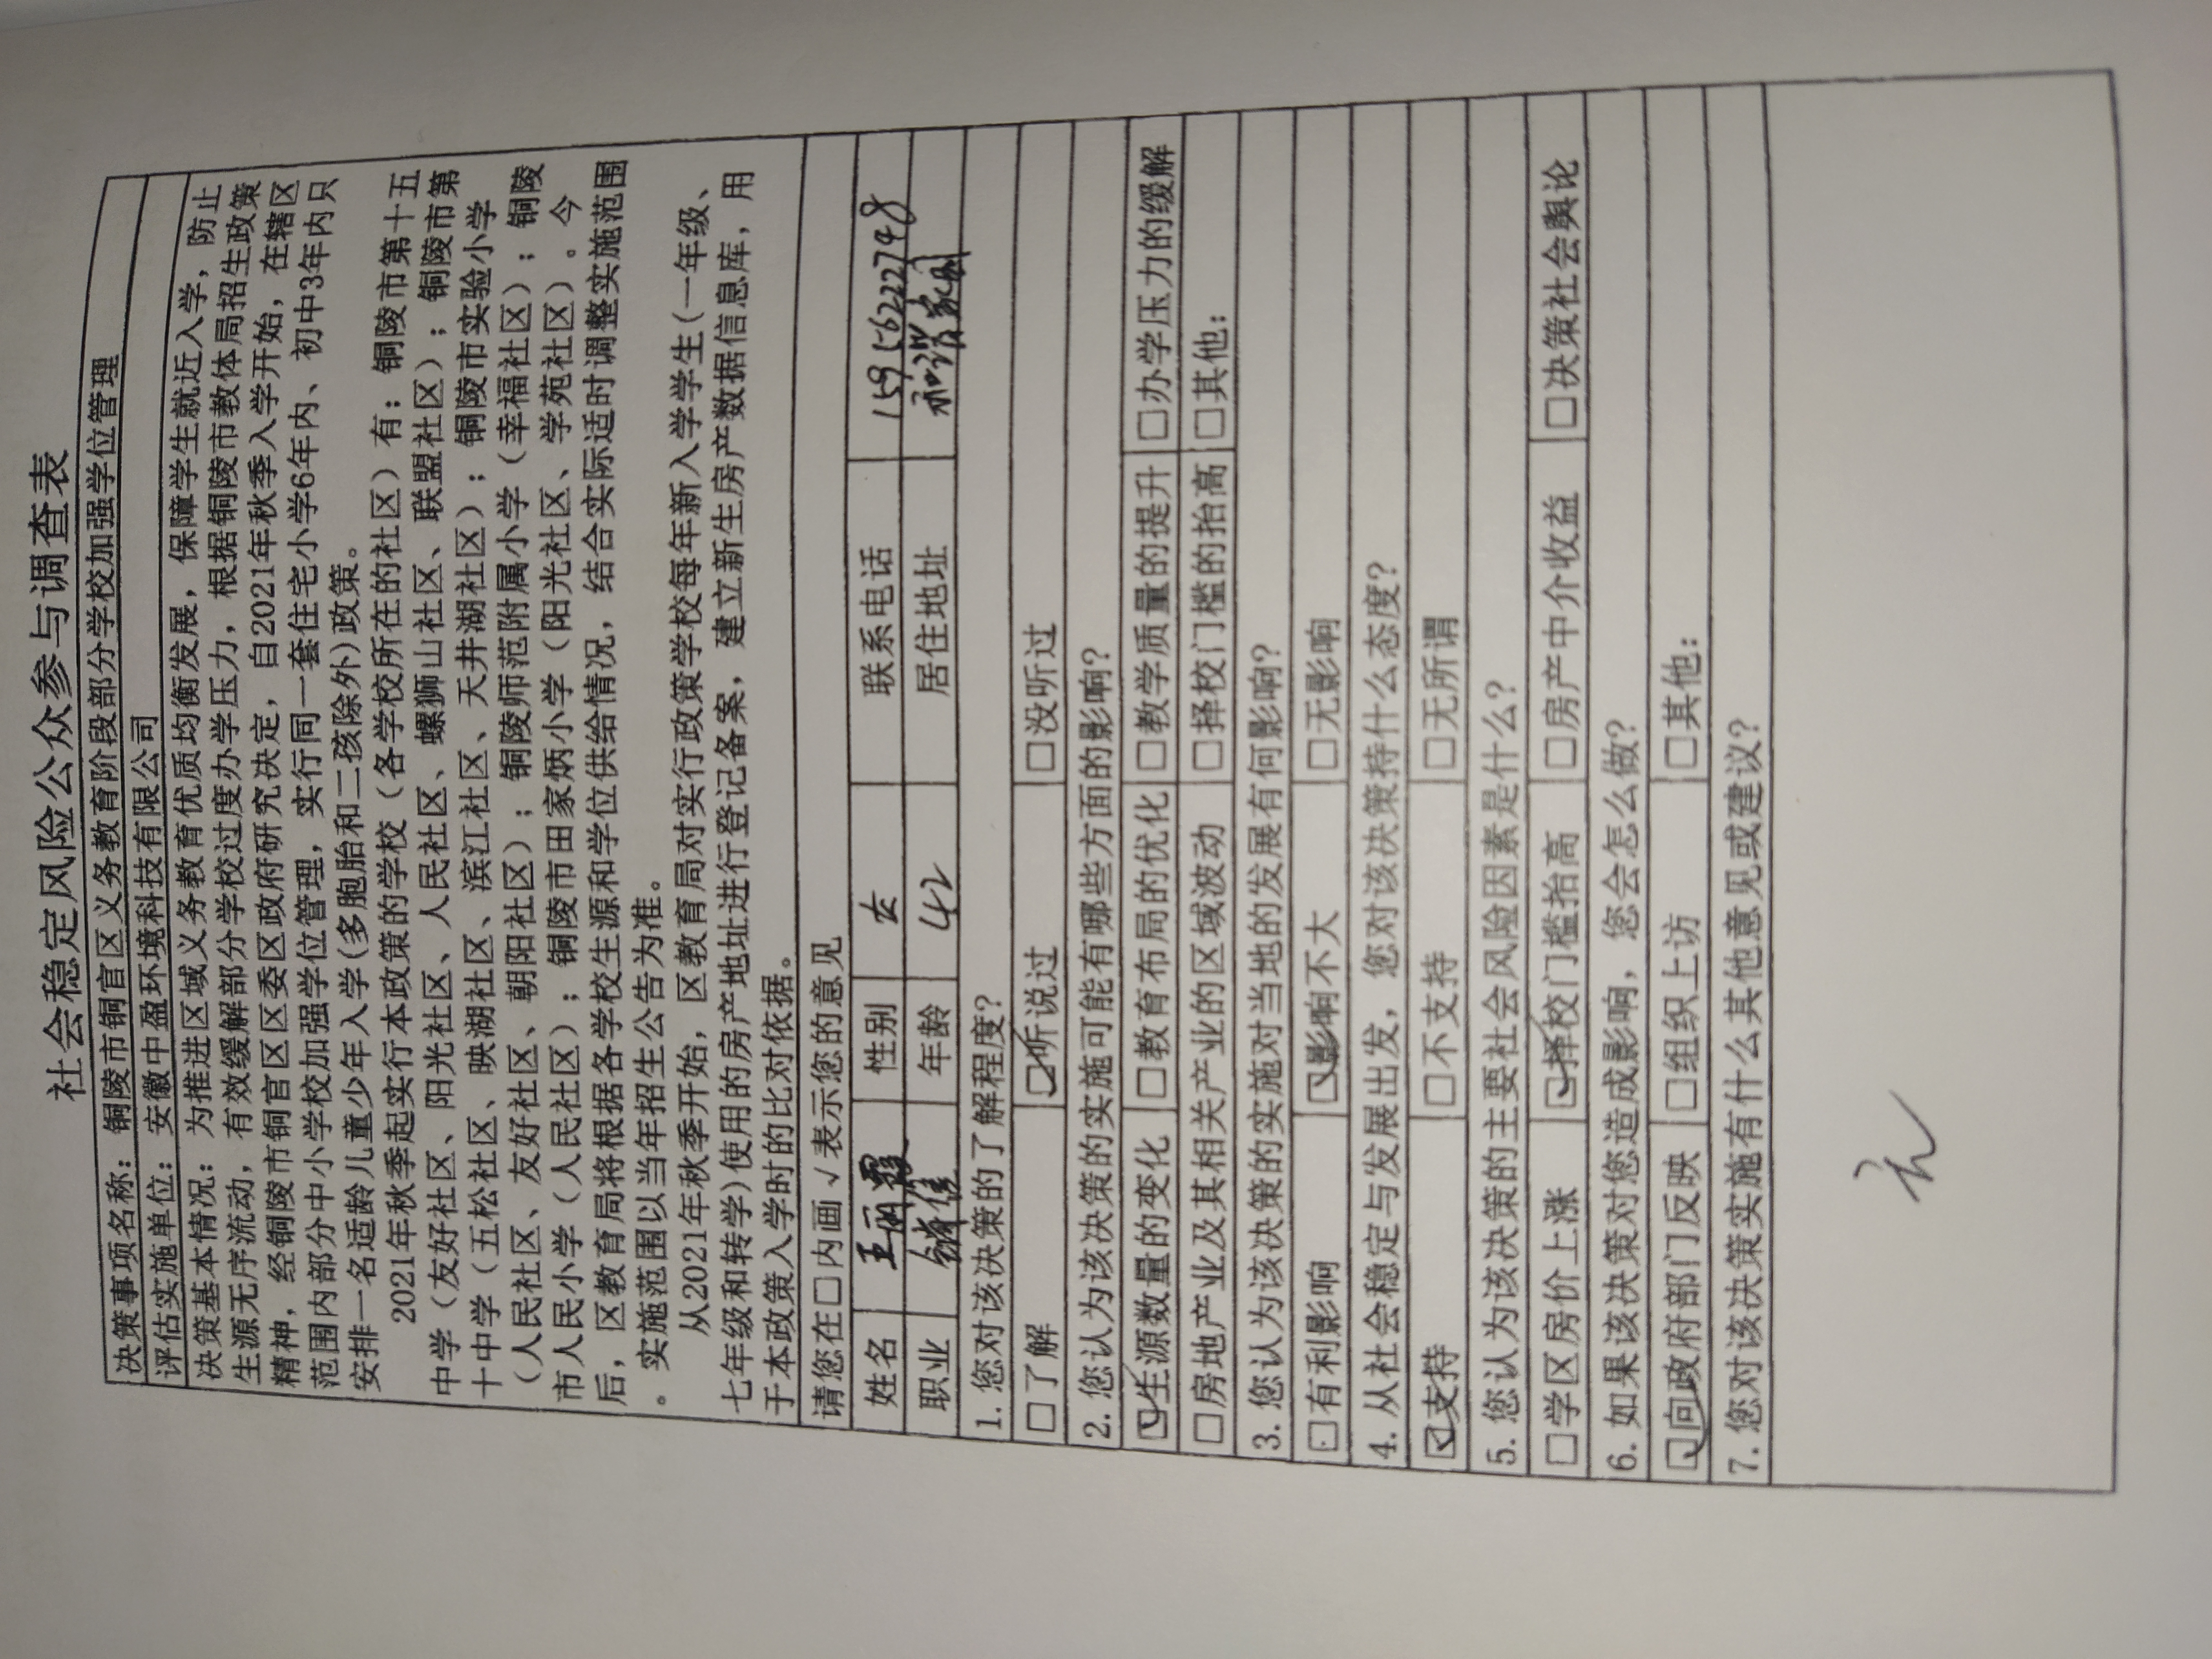 社会稳定风险公众参与调查表
决策事项名称：铜陵市铜官区义务教育阶段部分学校加强学位管理
评估实施单位：安徽中盈环境科技有限公司
决策基本情况：为推进区域义务教育优质均衡发展，保障学生就近入学，防止
生源无序流动，有效缓解部分学校过度办学压力，根据铜陵市教体局招生政策
精神，经铜陵市铜官区区委区政府研究决定，自2021年秋季入学开始，在辖区
范围内部分中小学校加强学位管理，实行同一套住宅小学6年内、初中3年内只
安排一名适龄儿童少年入学(多胞胎和二孩除外)政策。
2021年秋季起实行本政策的学校（各学校所在的社区）有：铜陵市第十五
中学（友好社区、阳光社区、人民社区、螺狮山社区、联盟社区）；铜陵市第
十中学（五松社区、映湖社区、滨江社区、天井湖社区）；铜陵市实验小学
（人民社区、友好社区、朝阳社区）；铜陵师范附属小学（幸福社区）；铜陵
市人民小学（人民社区）；铜陵市田家炳小学（阳光社区、学苑社区）。今
后，区教育局将根据各学校生源和学位供给情况，结合实际适时调整实施范围
。实施范围以当年招生公告为准。
从2021年秋季开始，区教育局对实行政策学校每年新入学学生(一年级、
七年级和转学)使用的房产地址进行登记备案，建立新生房产数据信息库，用
于本政策入学时的比对依据。
请您在□内画√表示您的意见
姓名 王丽霞 性别 女 联系电话 15956222748
职业 销售 年龄 42 居住地址 和谐家园
1. 您对该决策的了解程度？
□了解 ☑听说过 □没听过
2. 您认为该决策的实施可能有哪些方面的影响？
☑生源数量的变化 □教育布局的优化 □教学质量的提升 □办学压力的缓解
□房地产业及其相关产业的区域波动 □择校门槛的抬高 □其他：
3. 您认为该决策的实施对当地的发展有何影响？
□有利影响 ☑影响不大 □无影响
4. 从社会稳定与发展出发，您对该决策持什么态度？
☑支持 □不支持 □无所谓
5. 您认为该决策的主要社会风险因素是什么？
□学区房价上涨 ☑择校门槛抬高 □房产中介收益 □决策社会舆论
6. 如果该决策对您造成影响，您会怎么做？
☑向政府部门反映 □组织上访 □其他：
7. 您对该决策实施有什么其他意见或建议？
无